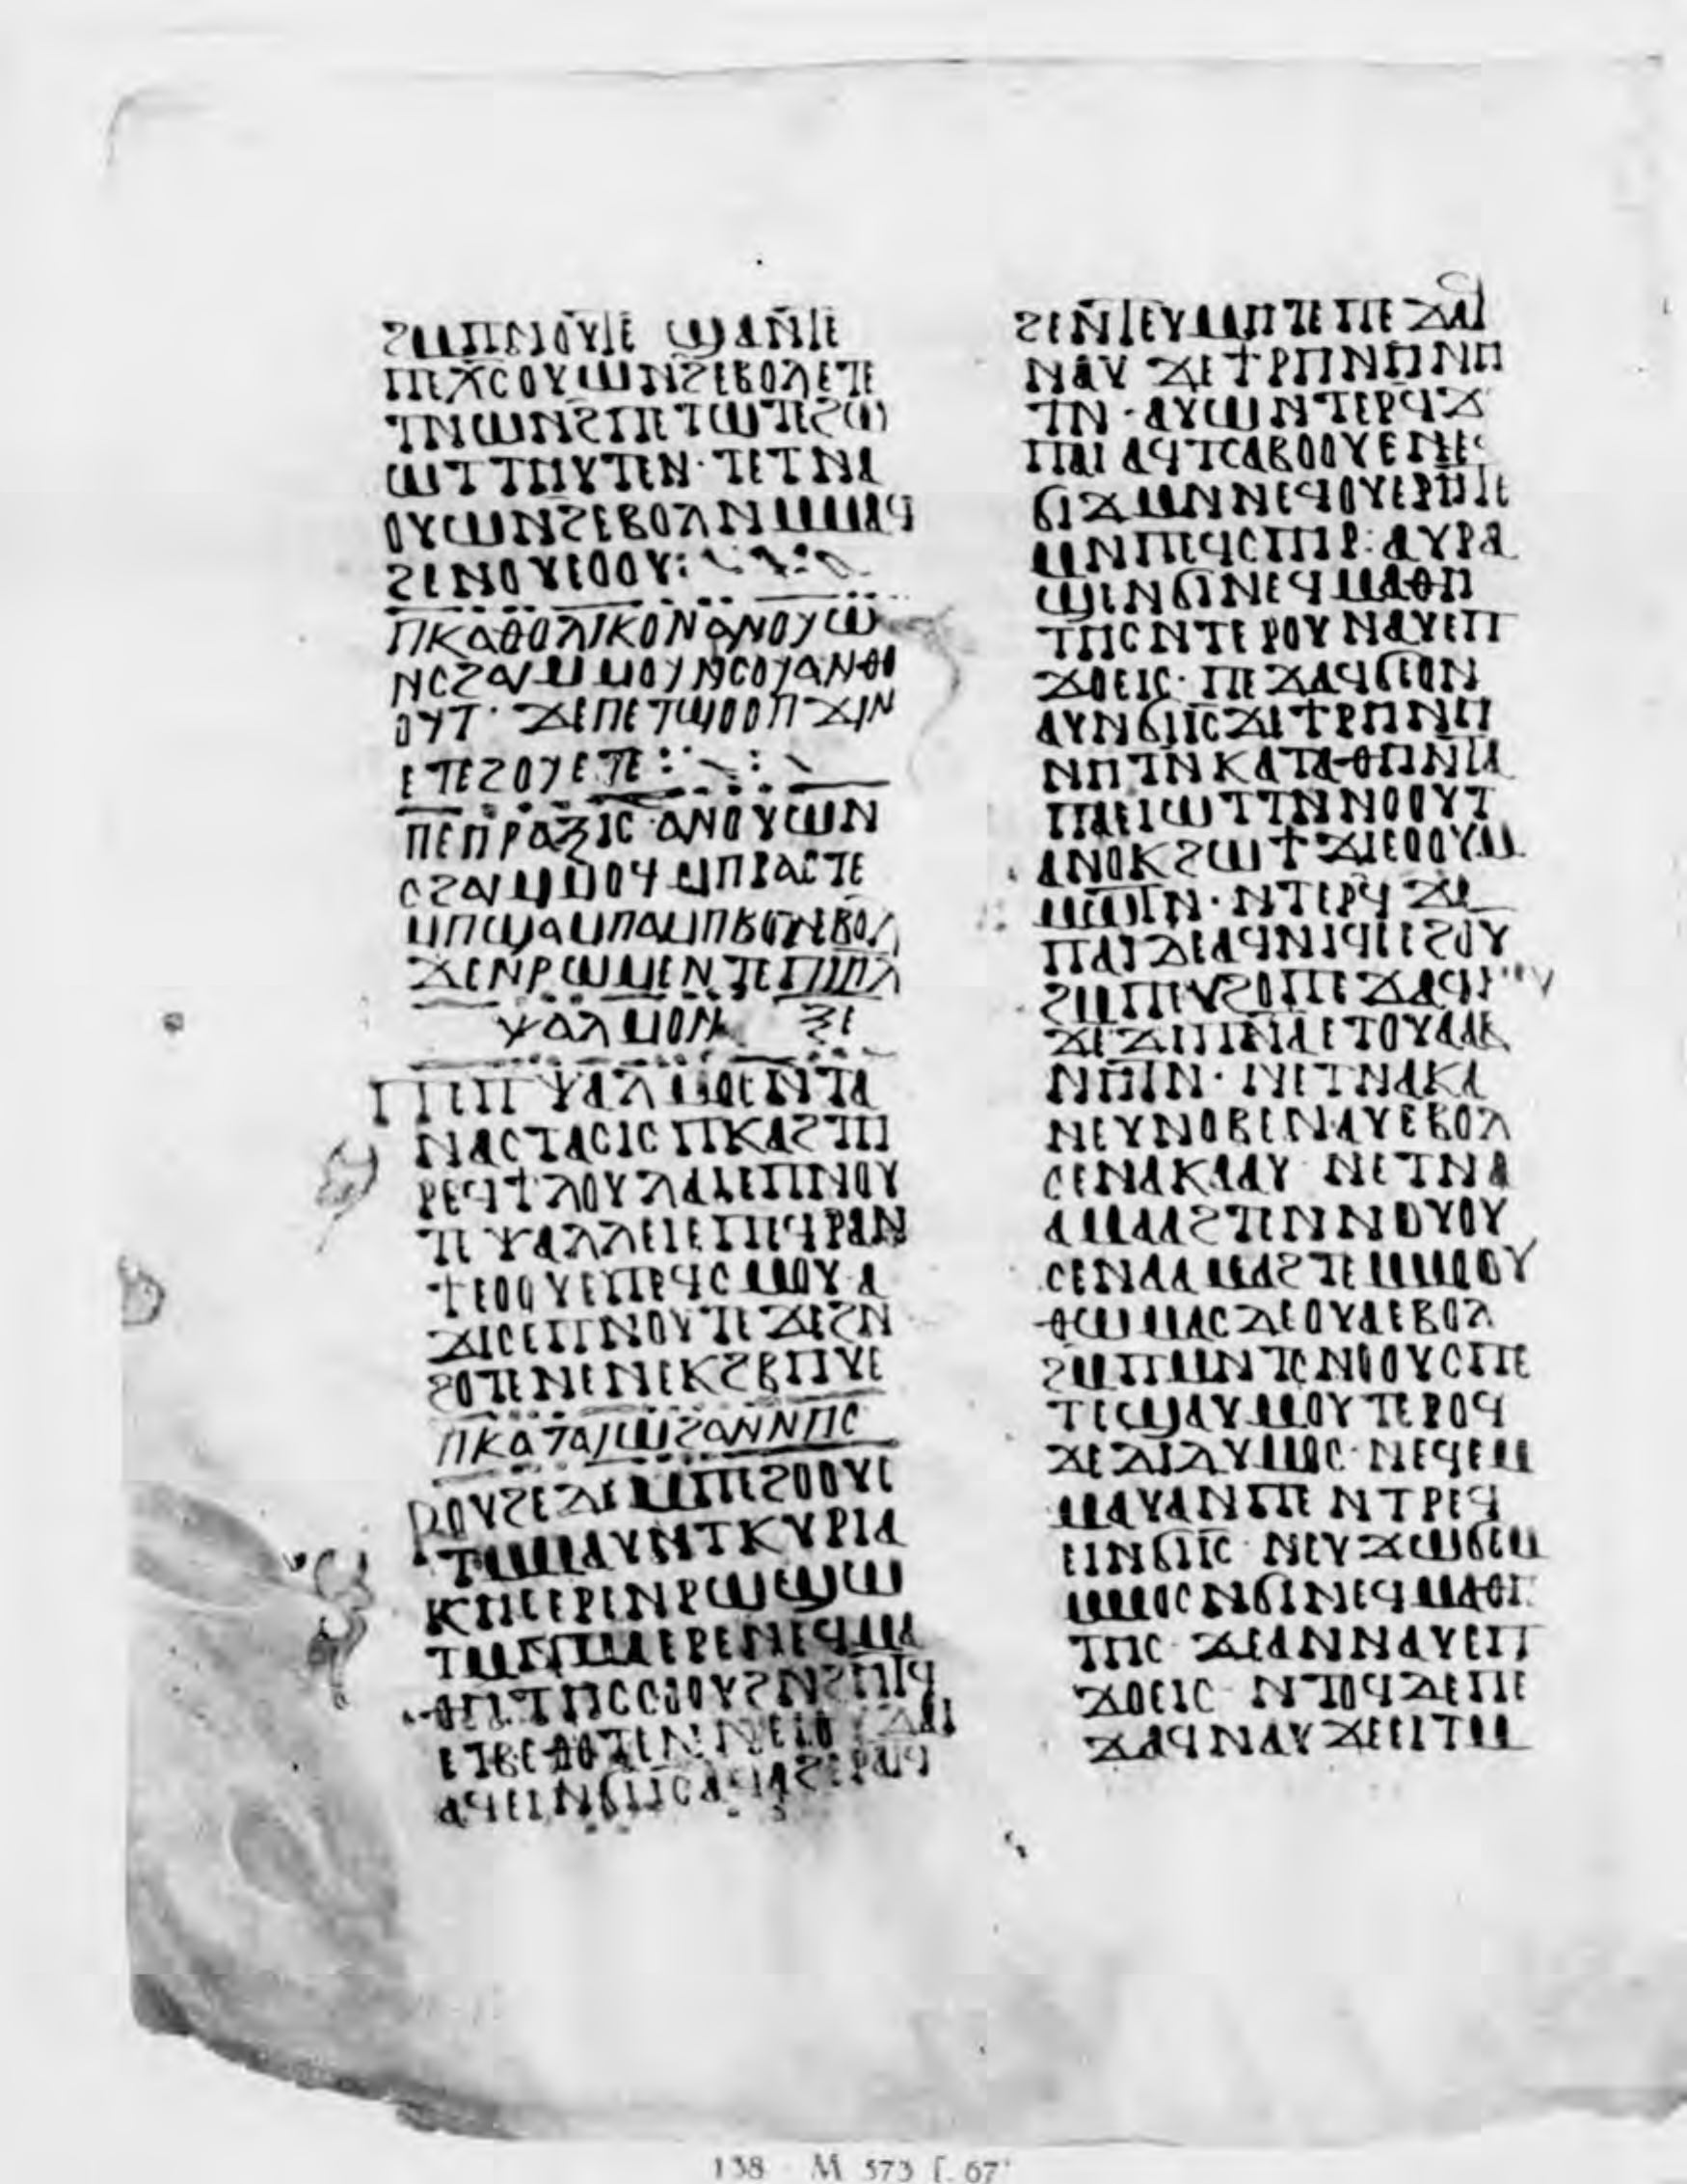 ϨⲘⲠⲚⲟⲩⲧⲉ ϣⲁⲛⲧⲉ
ⲡⲉⲭⲥⲟⲩⲱⲛϩⲉⲃⲟⲗⲉⲧⲉ
ⲡⲛⲱⲛϩⲡⲉ ⲧⲱⲧⲉϩⲱ
ⲱⲧⲧⲏⲩⲧⲉⲛ· ⲧⲉⲧⲛⲁ
ⲟⲩⲱⲛϩⲉⲃⲟⲗⲛⲙⲙⲁϥ
ϩⲉⲛⲟⲩⲉⲟⲟⲩ:
ⲡⲕⲁⲑⲟⲗⲓⲕⲟⲛⲁⲛⲟⲩⲱ
ⲛⲥϩⲁⲓⲙⲙⲟⲩⲛⲥⲟⲩⲁⲛⲑⲟ
ⲟⲩⲧ· ϫⲉⲡⲉⲧϣⲟⲟⲡϫⲓⲛ
ⲉⲧⲉϩⲟⲩⲉⲧⲉ:
ⲡⲉⲡⲣⲁⲝⲓⲥ·ⲁⲛⲟⲩⲱⲛ
ⲥϩⲁⲓⲙⲙⲟϥⲙⲡⲣⲁⲥⲧⲉ
ⲙⲡϣⲁⲙⲡⲁⲙⲡⲃⲱⲛⲉⲃⲟⲗ
ϫⲉⲛⲣⲱⲙⲉⲛⲧⲉⲡⲓⲏⲗ
ⲯⲁⲗⲙⲟⲛ ⲝⲉ
ⲡⲉⲡⲯⲁⲗⲙⲟⲉⲛⲧⲁ
ⲛⲁⲥⲧⲁⲥⲓⲥ ⲡⲕⲁϩⲧⲏ
ⲣⲉϥϯⲗⲟⲩⲗⲁⲓⲉⲡⲛⲟⲩ
ⲧⲉ ⲯⲁⲗⲗⲉⲓⲉⲡⲉϥⲣⲁⲛ
ϯⲉⲟⲟⲩⲉⲡⲉϥⲥⲙⲟⲩ·ⲁ
ϫⲓⲥⲉⲡⲛⲟⲩⲧⲉ ϫⲉϩⲛ
ϩⲟⲧⲉⲛⲉⲛⲉⲕϩⲃⲏⲩⲉ
ⲡⲕⲁⲧⲁⲓⲱϩⲁⲛⲛⲏⲥ
ⲣⲟⲩϩⲉⲇⲉⲙⲡⲉϩⲟⲟⲩⲉ
ⲧⲙⲙⲁⲩⲛⲧⲕⲩⲣⲓⲁ
ⲕⲏⲉⲣⲉⲛⲣⲱϣⲱ
ⲧⲙⲙⲡⲙⲁⲉⲣⲉⲛⲉϥⲙⲁ
ⲑⲏⲧⲏⲥⲥⲟⲟⲩϩⲛϩⲏⲧϥ
ⲉⲧⲃⲉⲑⲟⲧⲉⲛⲛⲉⲓⲟⲩⲇⲁⲓ
ⲁϥⲉⲓⲛϭⲓⲓⲥⲁϥⲁϩⲉⲣⲁϥ
ϩⲉⲛⲧⲉⲩⲙⲏⲧⲉ ⲡⲉϫⲁϥ
ⲛⲁⲩ ϫⲉϯⲣⲏⲛⲏⲛⲏ
ⲧⲛ· ⲁⲩⲱⲛⲧⲉⲣϥϫ
ⲡⲁⲓ ⲁϥⲧⲥⲁⲃⲟⲟⲩⲉⲛⲉϥ
ϭⲓϫⲙⲛⲛⲉϥⲟⲩⲉⲣⲏⲧⲉ
ⲙⲛⲡⲉϥⲥⲡⲓⲣ: ⲁⲩⲣⲁ
ϣⲉⲛϭⲓⲛⲉϥⲙⲁⲑⲏ
ⲧⲏⲥⲛⲧⲉⲣⲟⲩⲛⲁⲩⲉⲡ
ϫⲟⲉⲓⲥ· ⲡⲉϫⲁϥϭⲉⲟⲛ
ⲁⲩⲛϭⲓⲓⲥϫⲉϯⲣⲏⲛⲏ
ⲛⲏⲧⲛⲕⲁⲧⲁⲑⲏⲛⲧⲁ
ⲡⲁⲉⲓⲱⲧⲧⲛⲛⲟⲟⲩⲧ
ⲁⲛⲟⲕϩⲱϯϫⲓⲉⲟⲟⲩⲙ
ⲙⲱⲧⲛ· ⲛⲧⲉⲣϥϫⲉ
ⲡⲁⲓⲇⲉⲁϥⲛⲓϥⲉⲉϩⲟⲩ
ϩⲙⲡⲉⲩϩⲟⲡⲉϫⲁϥⲛⲁⲩ
ϫⲉϫⲓⲡⲛⲁⲉⲧⲟⲩⲁⲁⲃ
ⲛⲏⲧⲛ· ⲛⲉⲧⲛⲁⲕⲁ
ⲛⲉⲩⲛⲟⲃⲉⲛⲁⲩⲉⲃⲟⲗ
ⲥⲉⲛⲁⲕⲁⲁⲩ ⲛⲉⲧⲛⲁ
ⲁⲙⲁϩⲧⲉⲛⲛⲟⲩⲟⲩ
ⲥⲉⲛⲁⲁⲙⲁϩⲧⲉⲙⲙⲟⲟⲩ
ⲑⲱⲙⲁⲥⲇⲉⲟⲩⲁⲉⲃⲟⲗ
ϩⲙⲡⲙⲛⲧⲥⲛⲟⲟⲩⲥⲡⲉ
ⲧⲉϣⲁⲩⲙⲟⲩⲧⲉⲣⲟϥ
ϫⲉⲇⲓⲇⲩⲙⲟⲥ· ⲛⲉϥⲉⲙ
ⲙⲁⲩⲁⲛⲡⲉ ⲛⲧⲣⲉϥ
ⲉⲓⲛϭⲓⲓⲥ· ⲛⲉⲩϫⲱϭⲉⲙ
ⲙⲙⲟⲥⲛϭⲓⲛⲉϥⲙⲁⲑⲏ
ⲧⲏⲥ· ϫⲉⲁⲛⲛⲁⲩⲉⲡ
ϫⲟⲉⲓⲥ· ⲛⲧⲟϥⲇⲉⲡⲉ
ϫⲁϥⲛⲁⲩϫⲉⲉⲓⲧⲙ
138 M 573 f. 67ʳ